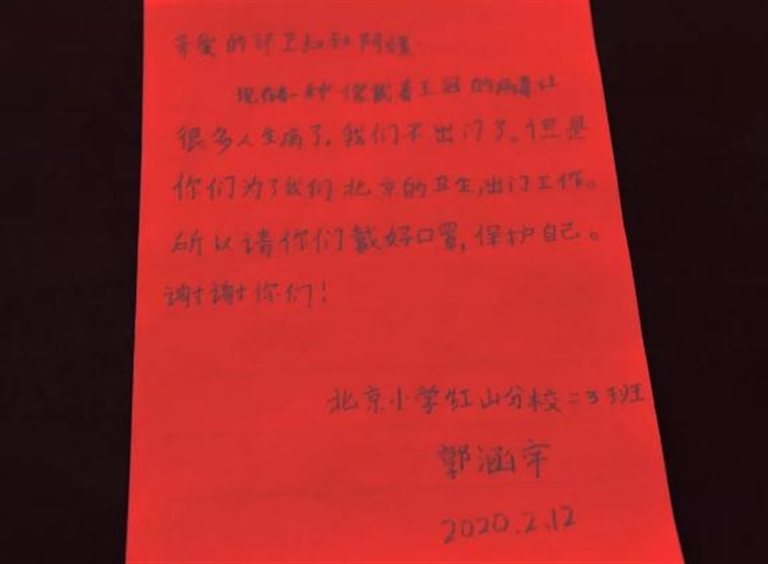 亲爱的环卫叔叔阿姨
现在有一种像戴着王冠的病毒让
很多人生病了,我们不出门了。但是
你们为了我们北京的卫生,出门工作。
所以请你们戴好口罩,保护自己。
谢谢你们!
北京小学红山分校二3班
郭涵宇
2020.2.12